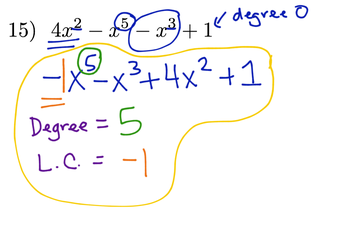 15) 4x² − x⁵ − x³ + 1 degree 0
−1x⁵ − x³ + 4x² + 1
Degree = 5
L.C. = −1